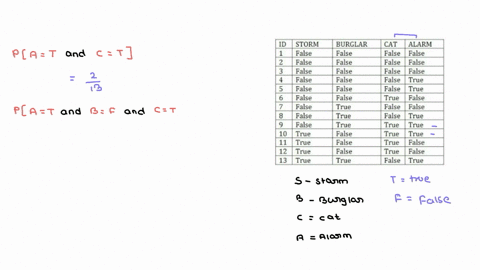 P[A=T and C=T]
= 2/13
P[A=T and B=F and C=T
ID STORM BURGLAR CAT ALARM
1 False False False False
2 False False False False
3 False False False False
4 False False False True
5 False False False True
6 False False True False
7 False True False False
8 False True False True
9 True False True True
10 True False True True
11 True False True False
12 True False True False
13 True True False True
S - Storm
B - Burglar
C = cat
A = Alarm
T = true
F = False